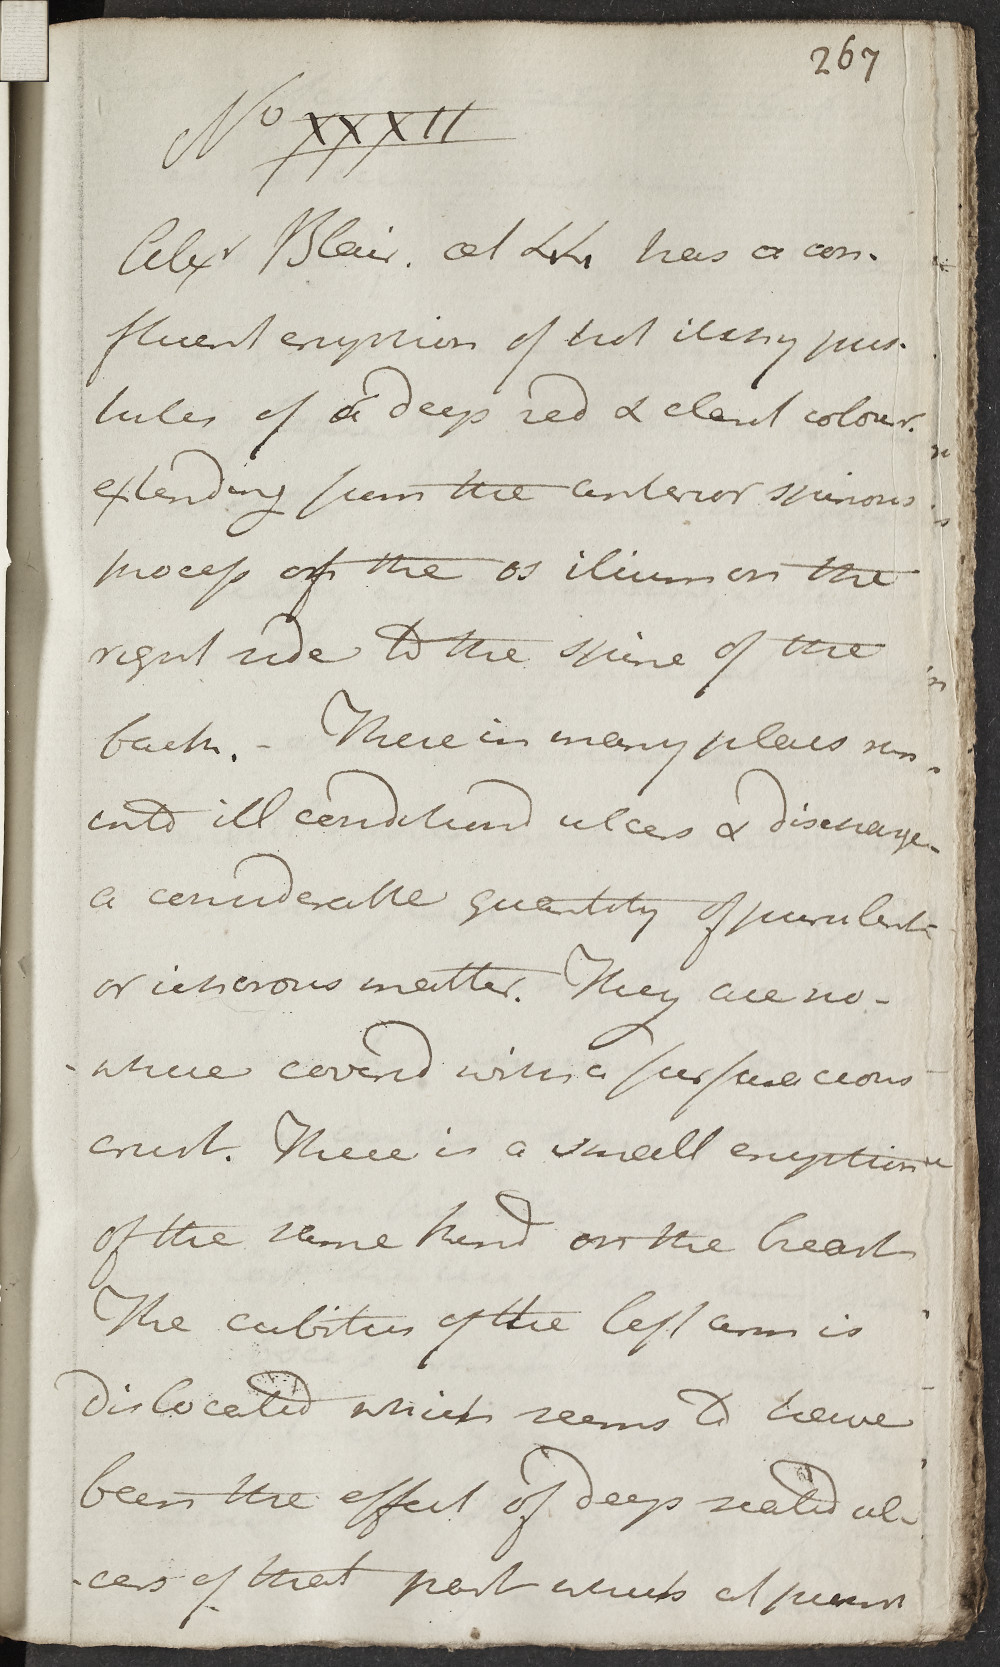 267
No XXXII
Alexr Blair. æt 44 has a con-
fluent eruption of hot itchy pus-
tules of a deep red & colour.
extending from the anterior spinous
process of the os ilium on the
right side to the spine of the
back. - These in many places run
into ill conditiond ulcers & discharge
a considerable quantity of purulent
or ichorous matter. They are no-
-where coverd with a furfuraceous
crust. There is a small eruption
of the same kind on the breast
The cubitus of the left arm is
dislocated which seems to have
been the effect of deep seated ul-
-cers of that part which at present